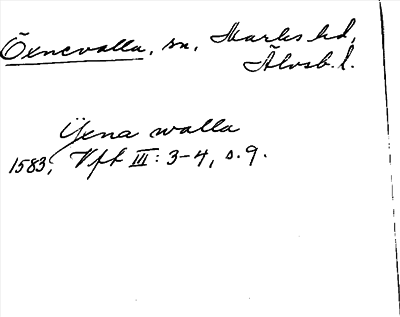 Öxnevalla, sn, Marks hd,
Älvsb. l.
Yxna walla
1583, Vft III: 3-4, s. 9.